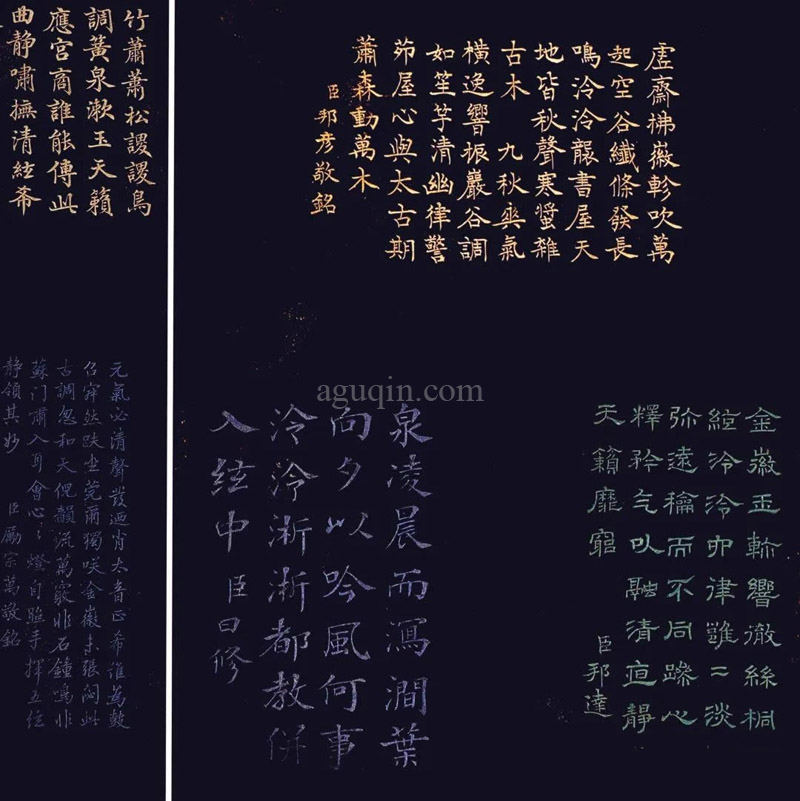 虛齋拂嶶軫吹萬
起空谷纖條發長
鳴泠泠襲書屋天
地皆秋聲寒螿雜
古木 九秋爽氣
橫逸響振巖谷調
如笙竽清幽律警
茆屋心與太古期
蕭森動萬木
臣邦彥敬銘
竹蕭蕭松謖謖鳥
調簧泉漱玉天籟
應宮商誰能傳此
曲静嘯撫清絃希
金嶶玉軫響徹絲桐
絃泠泠中律雝二淡
弥遠窕而不同躁心
釋矜气以融清直靜
天籟靡窮
臣邦達
泉凌晨而瀉澗葉
向夕以吟風何事
泠泠淅淅都教併
入絃中 臣曰修
元氣必清聲發迺肖太音正希誰為鼓
召窅然趺坐莞爾獨咲金徽未張闷此
古調忽和天倪韻流萬竅非石鐘鳴非
蘇门嘯入耳會心心燈自照手揮五絃
静領其妙 臣勵宗萬敬銘
aguqin.com